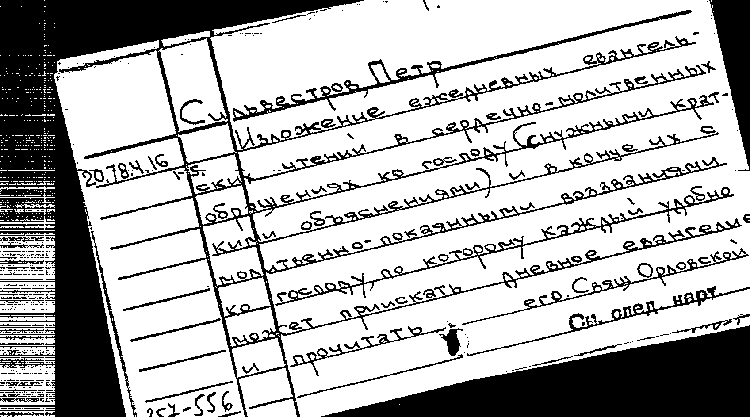 Сильвестров, Петр
Изложение ежедневных евангель-
20.78.4.16 ских чтений в сердечно-молитвенных
обращениях ко господу (с нужными крат-
кими объяснениями) и в конце их с
молитвенно-покаянными воззваниями
ко господу, по которому каждый удобно
может приискать дневное евангелие
и прочитать его. Свящ Орловской
См. след. карт.
257-556